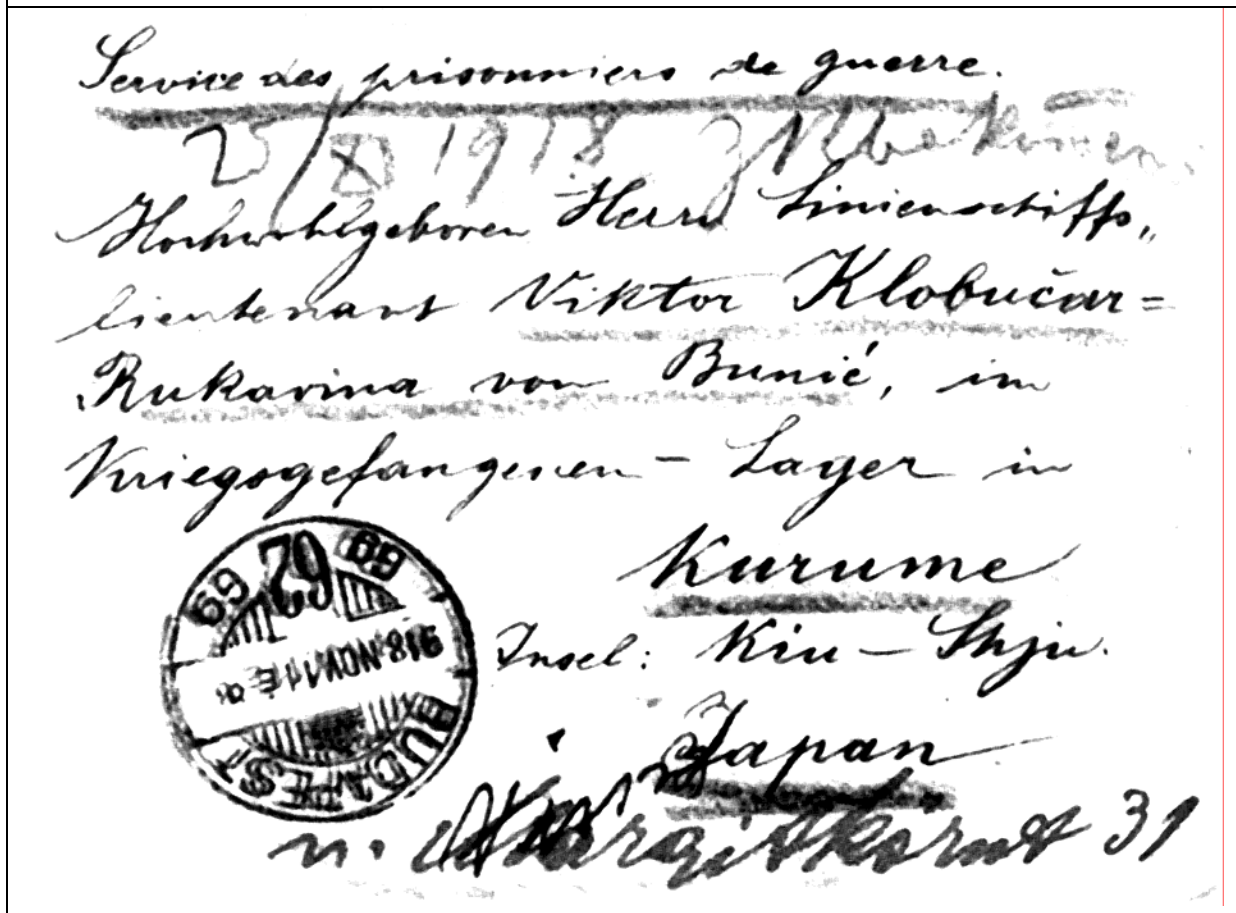 Service des prisonniers de guerre.
25/XI 1918
Hochwohlgeboren Herrn Linienschiffs„
lieutenant Viktor Klobučar=
Rukavina von Bunić, im
Kriegsgefangenen - Lager in
Kurume
Insel: Kiu - Shju.
Japan
69 62 69
918 NOV 11
BUDAPEST
Margitkörut 31